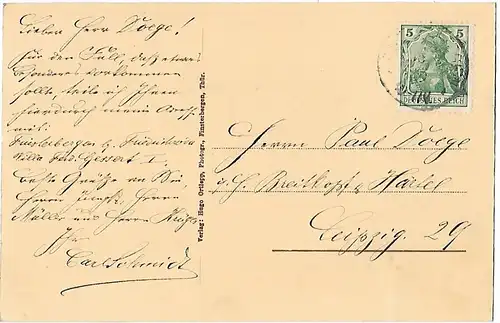 Lieber Herr Doege!
Für den Fall, daß etwas
besonderes vorkommen
sollte teile ich Ihnen
hierdurch meine Adresse
mit:
Finsterbergen b/ Friedrichroda
Villa Ferd. Gessert I.
Beste Grüße an Sie,
Herrn Herrn
Müller und Herrn
Ihr
Carl Schmidt
Verlag: Hugo Ortlepp, Photogr., Finsterbergen, Thür.
5 5
DEUTSCHES REICH
Herrn Paul Doege
i. H. Breitkopf & Härtel
Leipzig. 29